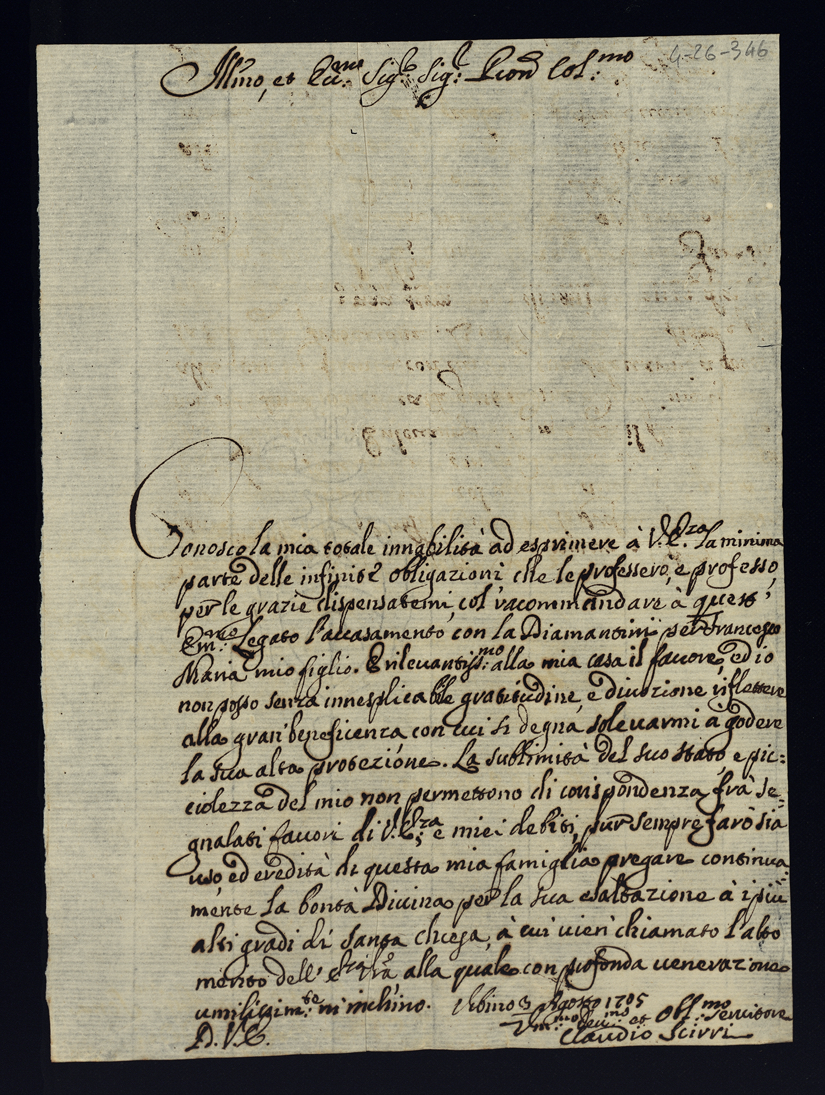 4-26-346
Ill.mo, et Ecc.mo Sig.r Sig.r Pron Col.mo
Conosco la mia totale innabilità ad esprimere à V. Ecc.za la minima
parte delle infinite obligazioni che le professerò, e professo,
per le grazie dispensatemi, col' raccommandare à quest'
Em.mo Legato l'accasamento con la Diamantini per Francesco
Maria mio figlio. È rilevantiss.mo alla mia casa il favore, ed io
non posso senza innesplicabile gratitudine, e divozione riflettere
alla gran' beneficenza con cui si degna solevarmi à godere
la sua alta protezione. La sublimità del suo stato, e pic:
ciolezza del mio non permettono di corispondenza frà se-
gnalati favori di V. Ecc.za, e miei debiti, pur sempre farò sia
uso, ed eredità di questa mia famiglia pregare continua:
mente la bontà Divina per la sua esaltazione à i più
alti gradi di Santa chiesa, à cui vien' chiamato l'alto
merito dell' Ecc.za V.ra alla quale con profonda venerazione
umilissim.te m'inchino. Urbino 3 Agosto 1705
D. V. E. Um.mo Dev.mo et Obl.mo Servitore
Claudio Scirri